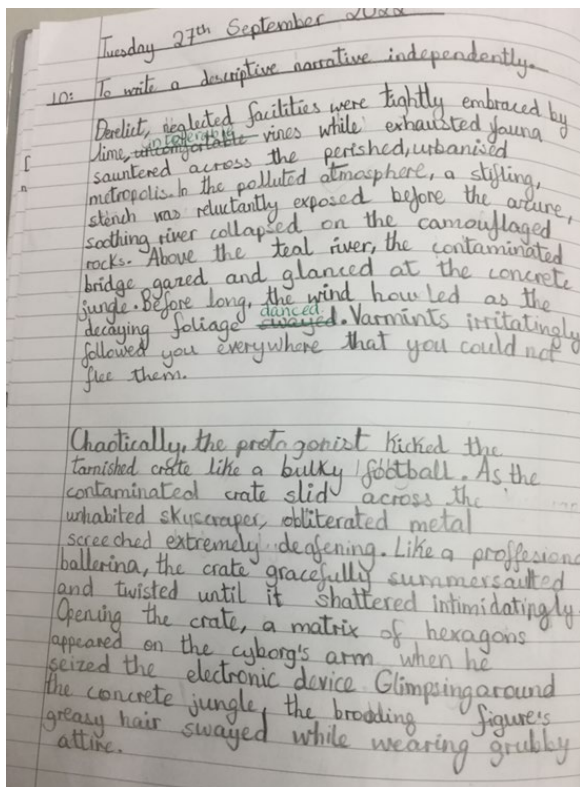 Tuesday 27th September 2022
LO: To write a descriptive narrative independently.
Derelict, neglected facilities were tightly embraced by
lime, uncomfortable vines while exhausted fauna
sauntered across the perished, urbanised
metropolis. In the polluted atmosphere, a stifling,
stench was reluctantly exposed before the azure,
soothing river collapsed on the camouflaged
rocks. Above the teal river, the contaminated
bridge gazed and glanced at the concrete
jungle. Before long, the wind howled as the
danced
decaying foliage swayed. Varmints irritatingly
followed you everywhere that you could not
flee them.
Chaotically, the protagonist kicked the
tarnished crate like a bulky football. As the
contaminated crate slid across the
unhabited skyscraper, obliterated metal
screeched extremely deafening. Like a proffesiona
ballerina, the crate gracefully summersaulted
and twisted until it shattered intimidatingly.
Opening the crate, a matrix of hexagons
appeared on the cyborg's arm when he
seized the electronic device. Glimpsing around
the concrete jungle, the brodding figure's
greasy hair swayed while wearing grubby
attire.